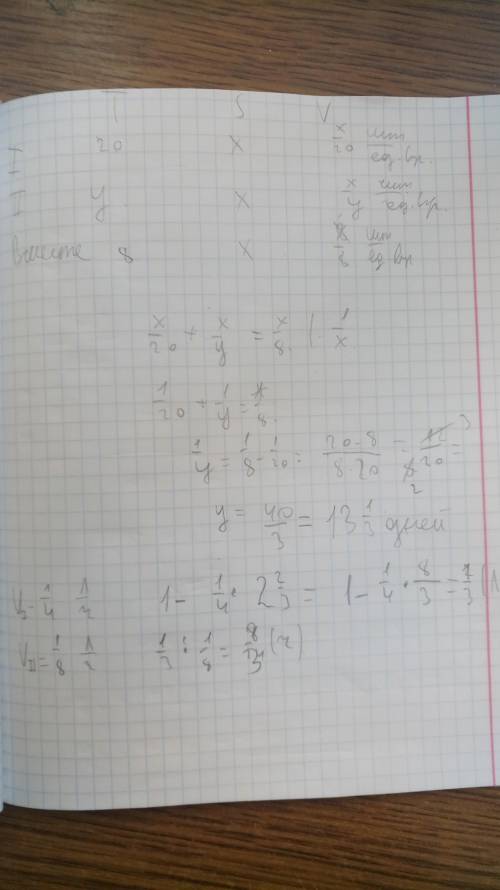 T S V
I 20 x x/20 шт/ед.вр.
II y x x/y шт/ед.вр.
Вместе 8 x x/8 шт/ед вр
x/20 + x/y = x/8 | · 1/x
1/20 + 1/y = 1/8
1/y = 1/8 - 1/20 = (20-8)/(8·20) = 12/(8·20) =
y = 40/3 = 13 1/3 дней
V_I - 1/4 1/ч 1 - 1/4 · 2 2/3 = 1 - 1/4 · 8/3 = 1/3
V_II = 1/8 1/ч 1/3 : 1/8 = 8/3 (ч)